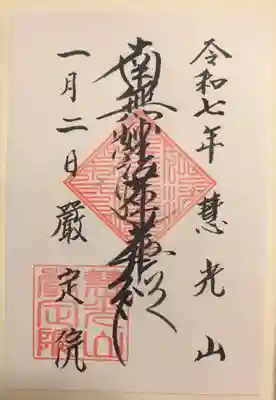 令和七年 慧光山
南無妙法蓮華経
一月二日 嚴定院